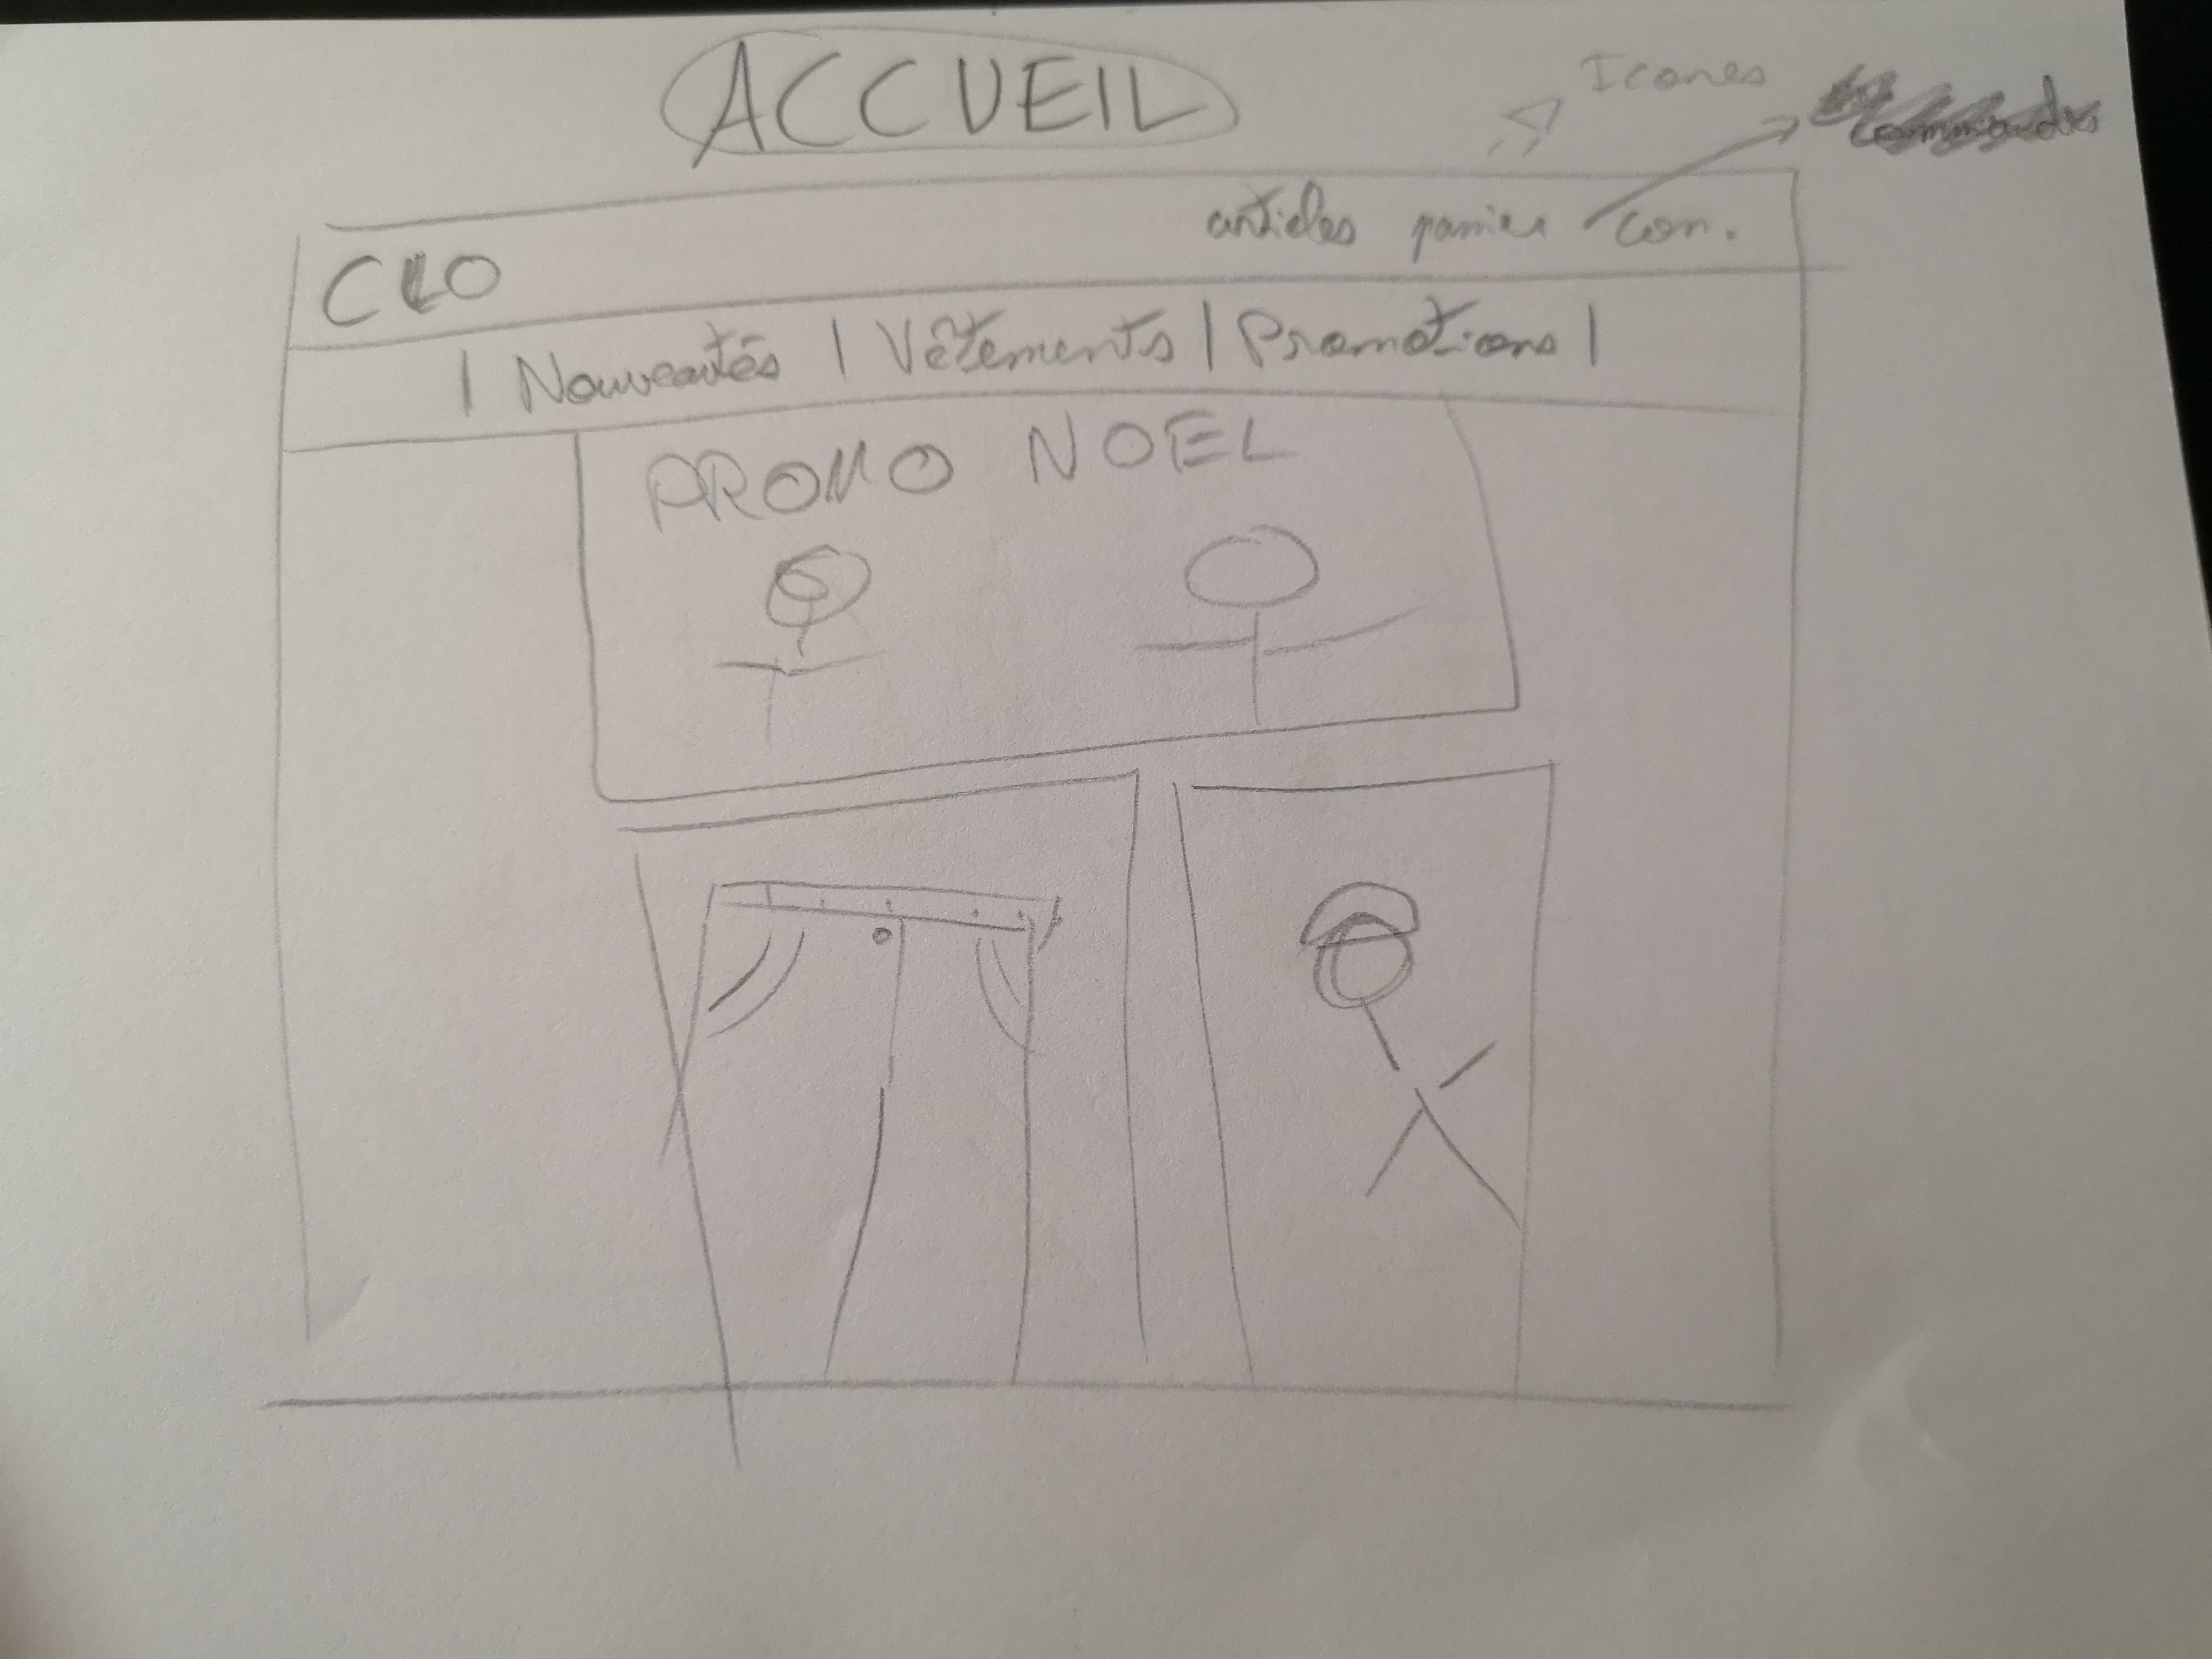 ACCUEIL
Icones
commandes
articles panier con.
CLO
| Nouveautés | Vêtements | Promotions |
PROMO NOEL